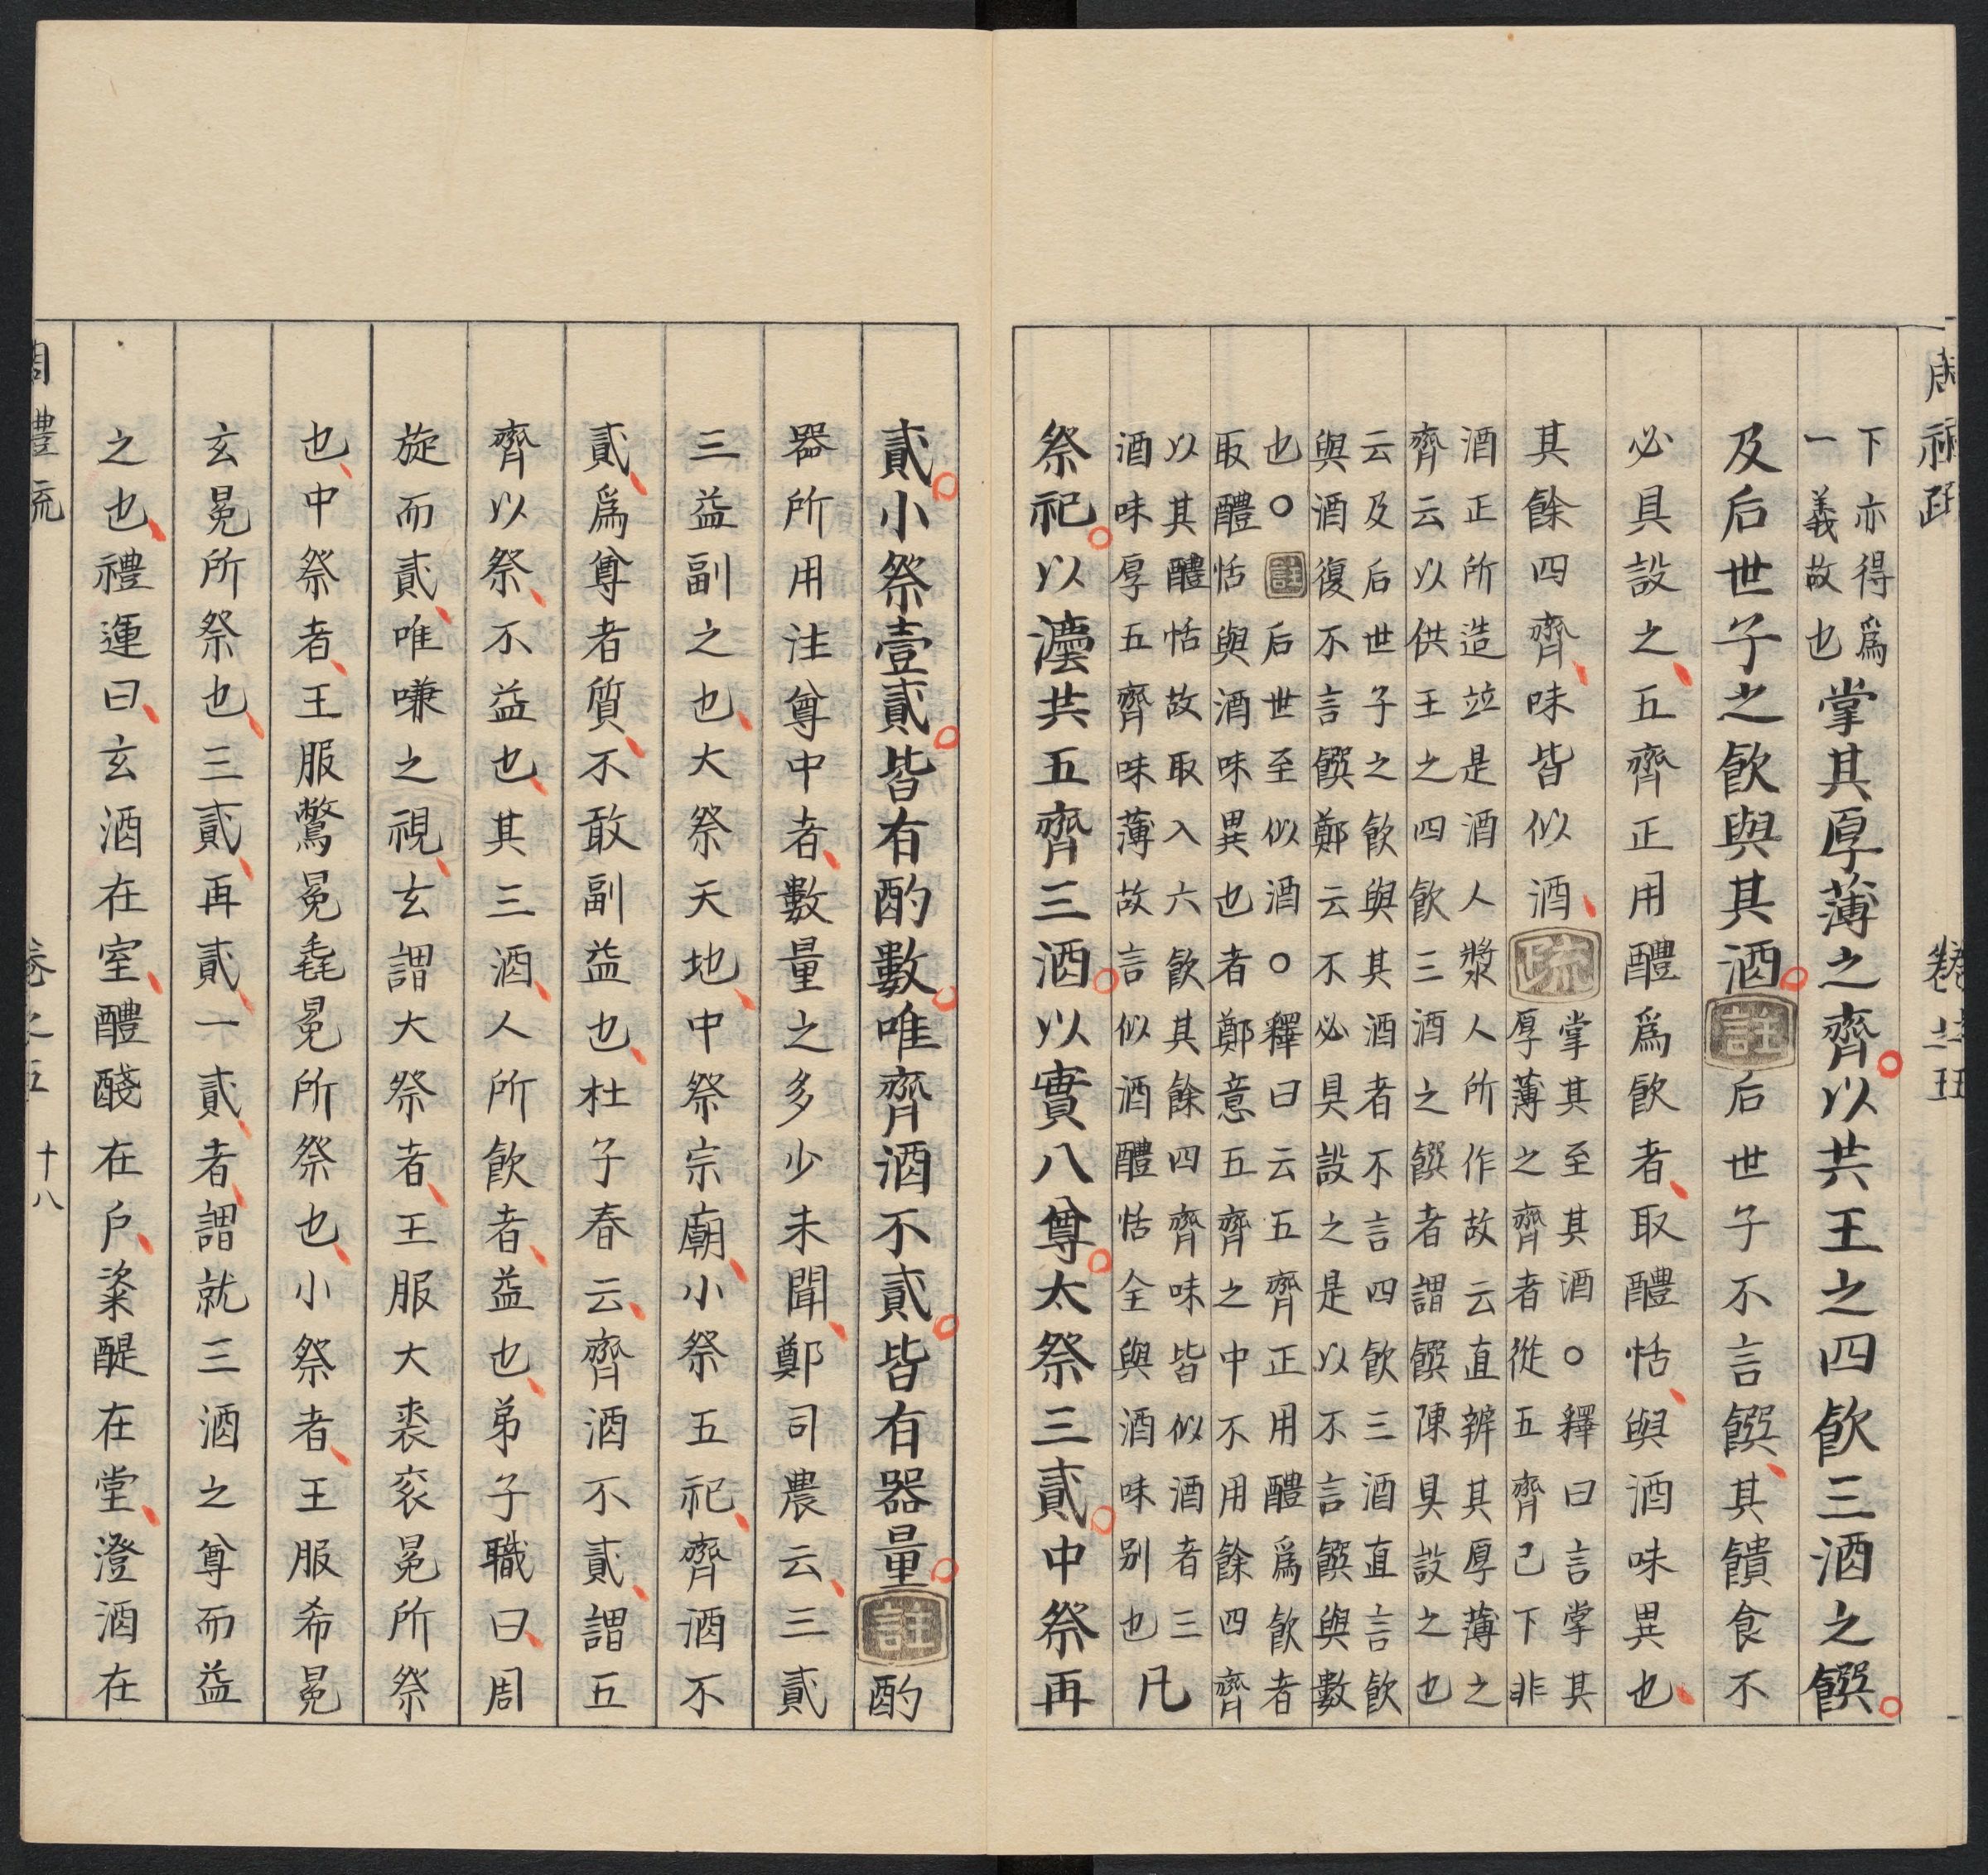 周禮疏 卷之五
下亦得爲
一義故也
掌其厚薄之齊以共王之四飮三酒之饌
及后世子之飮與其酒註后世子不言饌其饋食不
必具設之五齊正用醴爲飮者取醴恬與酒味異也
其餘四齊味皆似酒疏
掌其至其酒○釋曰言掌其
厚薄之齊者從五齊已下非
酒正所造竝是酒人漿人所作故云直辨其厚薄之
齊云以供王之四飮三酒之饌者謂饌陳具設之也
云及后世子之飮與其酒者不言四飮三酒直言飮
與酒復不言饌鄭云不必具設之是以不言饌與數
也○註后世至似酒○釋曰云五齊正用醴爲飮者
取醴恬與酒味異也者鄭意五齊之中不用餘四齊
以其醴恬故取入六飮其餘四齊味皆似酒者三
酒味厚五齊味薄故言似酒醴恬全與酒味別也
凡
祭祀以灋共五齊三酒以實八尊太祭三貳中祭再
貳小祭壹貳皆有酌數唯齊酒不貳皆有器量註酌
器所用注尊中者數量之多少未聞鄭司農云三貳
三益副之也大祭天地中祭宗廟小祭五祀齊酒不
貳爲尊者質不敢副益也杜子春云齊酒不貳謂五
齊以祭不益也其三酒人所飮者益也弟子職曰周
旋而貳唯嗛之視玄謂大祭者王服大裘衮冕所祭
也中祭者王服鷩冕毳冕所祭也小祭者王服希冕
玄冕所祭也三貳再貳一貳者謂就三酒之尊而益
之也禮運曰玄酒在室醴醆在戶粢醍在堂澄酒在
周禮疏 卷之五 十八